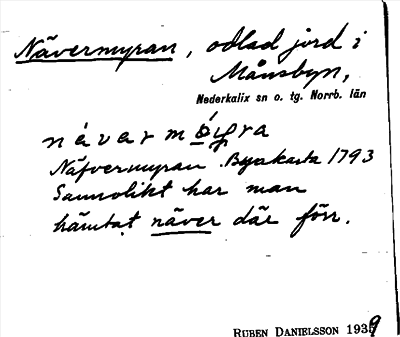 Nävermyran, odlad jord i
Månsbyn,
Nederkalix sn o. tg. Norrb. län
Näfvermyran Byakarta 1793
Sannolikt har man
hämtat näver där förr.
RUBEN DANIELSSON 1939